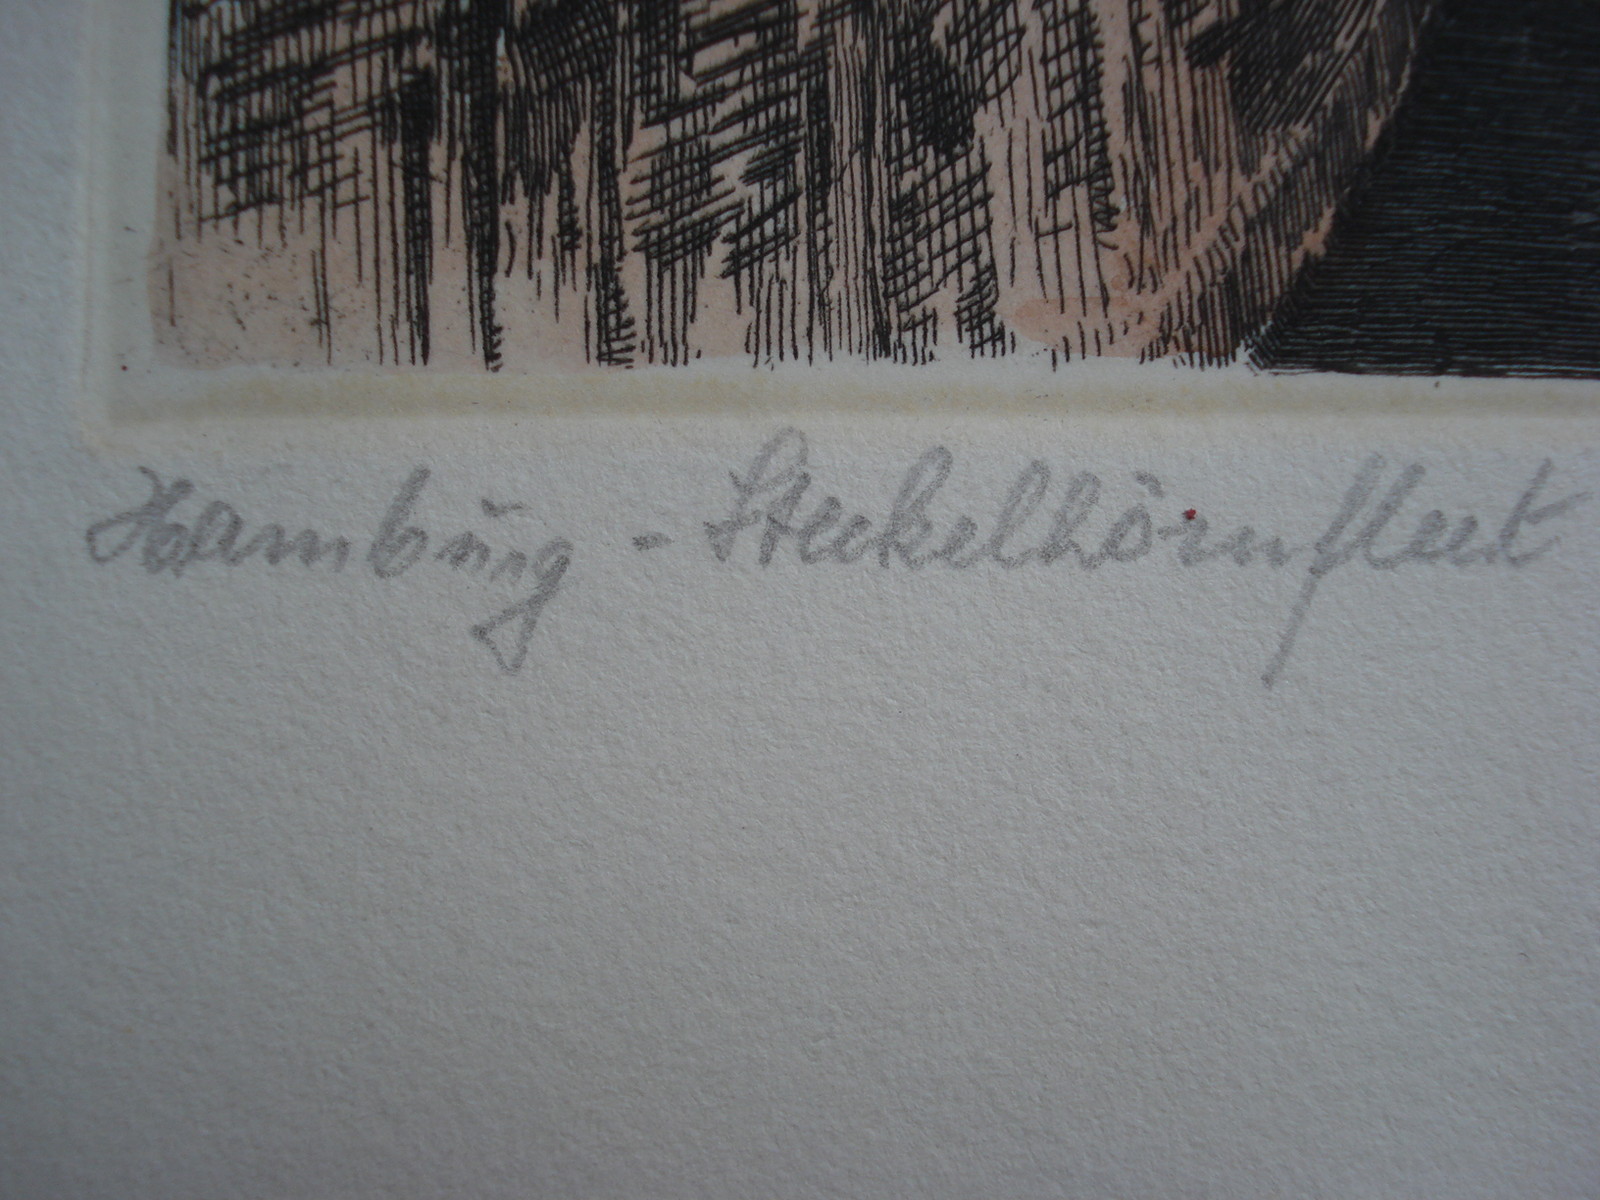 Hamburg - Steckelhörnfleet